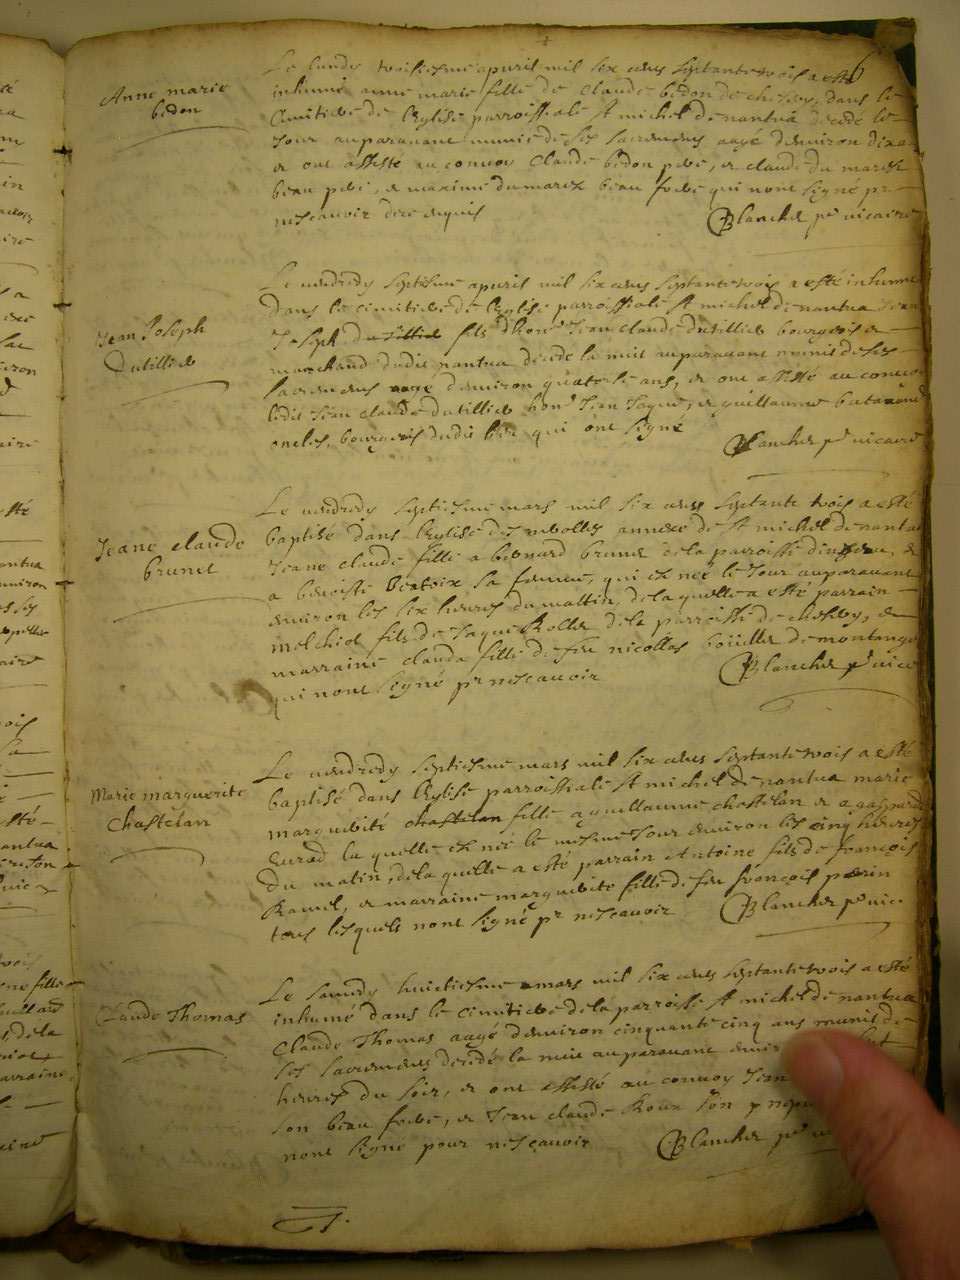 6
Anne marie
bedon
Le lundy troisiesme apvril mil six cens septante trois a esté
inhumé anne marie fille de Claude bedon de dans le
Cimitiere de leglise parroissiale st michel de nantua decedé le
Jour auparavant munie de ses sacremens aagé denviron dix
et ont assisté au convoy Claude bedon pere, et claude du marest
beau pere, et maxime dumarest beau frere qui nont signé pr
nescavoir de ce enquis Blanchet pr vicaire
Jean Joseph
Dutillier
Le vendredy septiesme apvril mil six cens septante trois a esté inhumé
dans le cimitiere de leglise parroissiale st michel de nantua Jean
Joseph dutillier fils dhonr Jean claude dutillier bourgeois et
marchand dudit nantua decedé la nuit auparavant munis de ses
sacremens aagé denviron quatorse ans, et ont assisté au convoy
ledit Jean claude dutillier honr Jean Jaque, et guillaume
oncles, bourgeois dudit lieu qui ont signé
Blanchet pr vicaire
Jeane claude
brunet
Le vendredy septiesme mars mil six cens septante trois a esté
baptisé dans leglise des neyrolles annexe de st michel de nantua
Jeane claude fille a bernard brunet de la parroisse et
a benoiste beatrix sa femme, qui est neé le Jour auparavant
environ les six heures du mattin, de laquelle a esté parrain
melchiol fils de Jaque Rollet de la parroisse de et
marraine clauda fille de feu nicollas de montange
qui nont signé pr nescavoir Blanchet pr vicr
Marie marguerite
Chastelan
Le vendredy septiesme mars mil six cens septante trois a esté
baptisé dans leglise parroissiale st michel de nantua marie
marguerite chastelan fille a guillaume chastelan et a gasparde
la quelle est neé le mesme Jour environ les cinq heures
du matin, de la quelle a esté parrain Antoine fils de françois
Ravet, et marraine marguerite fille de feu françois perrin
tous lesquels nont signé pr nescavoir Blanchet pr vicr
Claude Thomas
Le samedy huictiesme mars mil six cens septante trois a esté
inhumé dans le cimitiere de la parroisse st michel de nantua
Claude Thomas aagé denviron cinquante cinq ans munis de
ses sacremens decedé la nuit auparavant
heures du soir, et ont assisté au convoy Jean
son beau frere, et Jean claude Roux son
nont signé pour nescavoir Blanchet pr